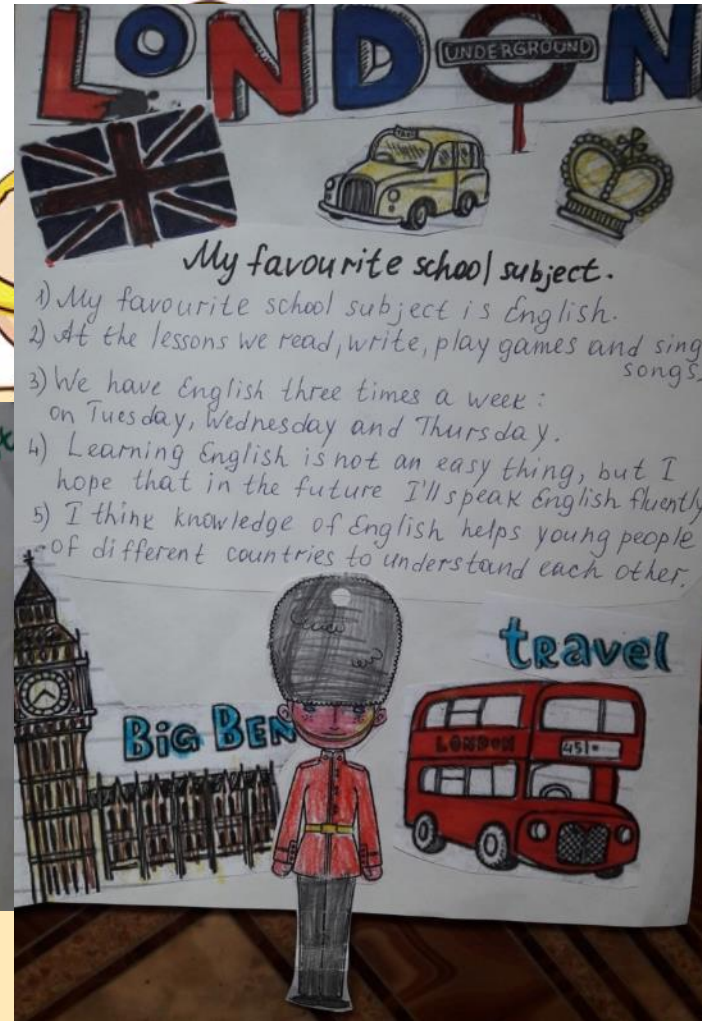 LONDON
UNDERGROUND
TAXI
My favourite school subject.
1) My favourite school subject is English.
2) At the lessons we read, write, play games and sing
songs.
3) We have English three times a week:
on Tuesday, Wednesday and Thursday.
4) Learning English is not an easy thing, but I
hope that in the future I'll speak English fluently
5) I think knowledge of English helps young people
of different countries to understand each other.
travel
BIG BEN
LONDON
451